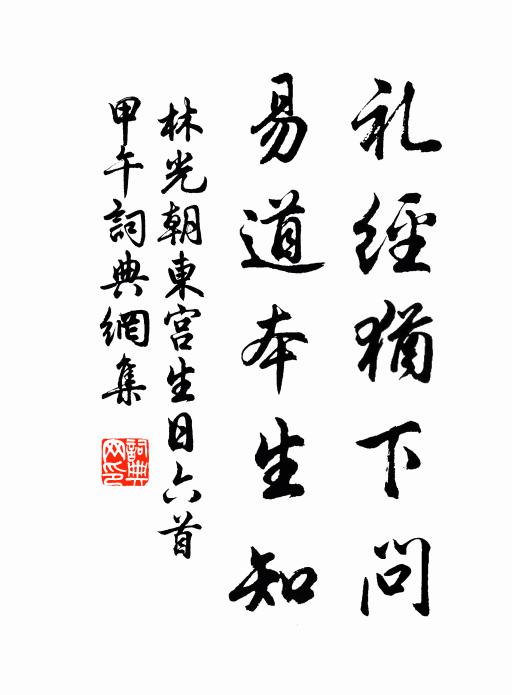 礼經猶下問
易道本生知
林光朝東宮生日六首
甲午詞典網集
詞典网印